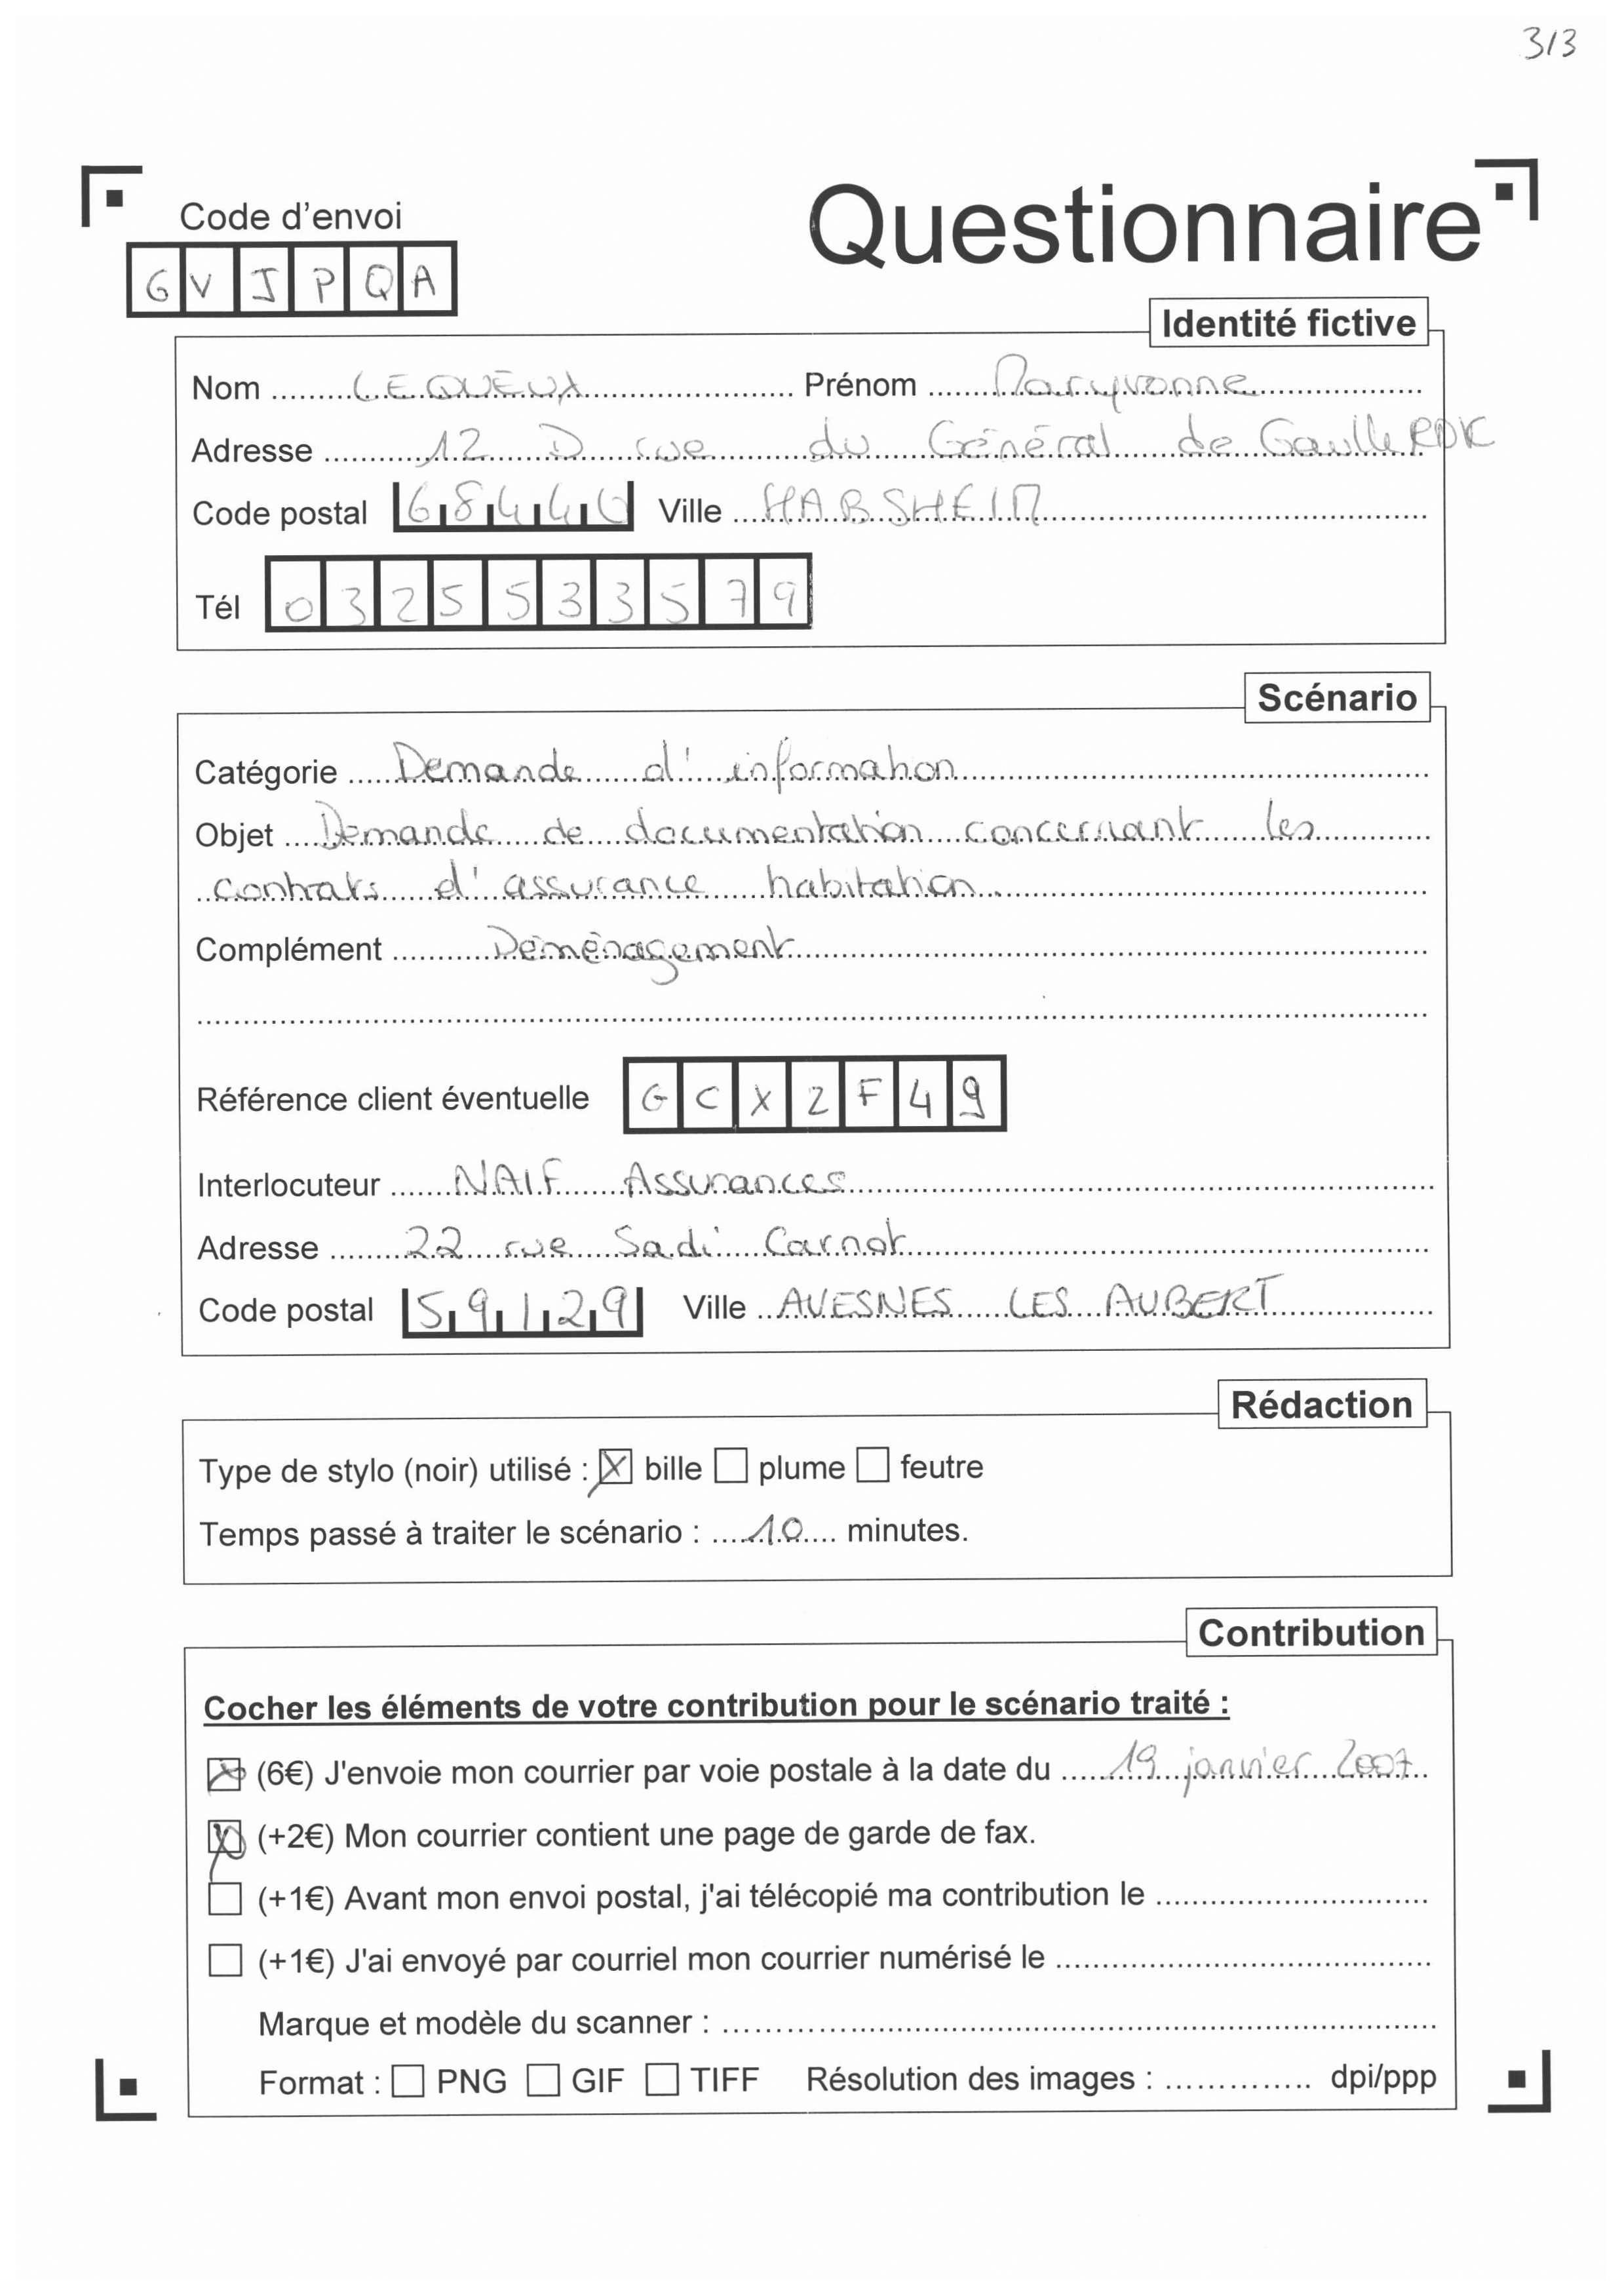 3/3
Code d'envoi
Questionnaire
G V J P Q A
Identité fictive
Nom LEQUEUX Prénom Maryvonne
Adresse 12 D rue du Général de Gaulle RDK
Code postal 68440 Ville HABSHEIM
Tél 0325533579
Scénario
Catégorie Demande d'information
Objet Demande de documentation concernant les
contrats d'assurance habitation.
Complément Déménagement
Référence client éventuelle G C X 2 F 4 9
Interlocuteur NAIF Assurances
Adresse 22 rue Sadi Carnot
Code postal 59129 Ville AVESNES LES AUBERT
Rédaction
Type de stylo (noir) utilisé : bille plume feutre
Temps passé à traiter le scénario : 10 minutes.
Contribution
Cocher les éléments de votre contribution pour le scénario traité :
(6€) J'envoie mon courrier par voie postale à la date du 19 janvier 2007
(+2€) Mon courrier contient une page de garde de fax.
(+1€) Avant mon envoi postal, j'ai télécopié ma contribution le
(+1€) J'ai envoyé par courriel mon courrier numérisé le
Marque et modèle du scanner :
Format : PNG GIF TIFF Résolution des images : dpi/ppp